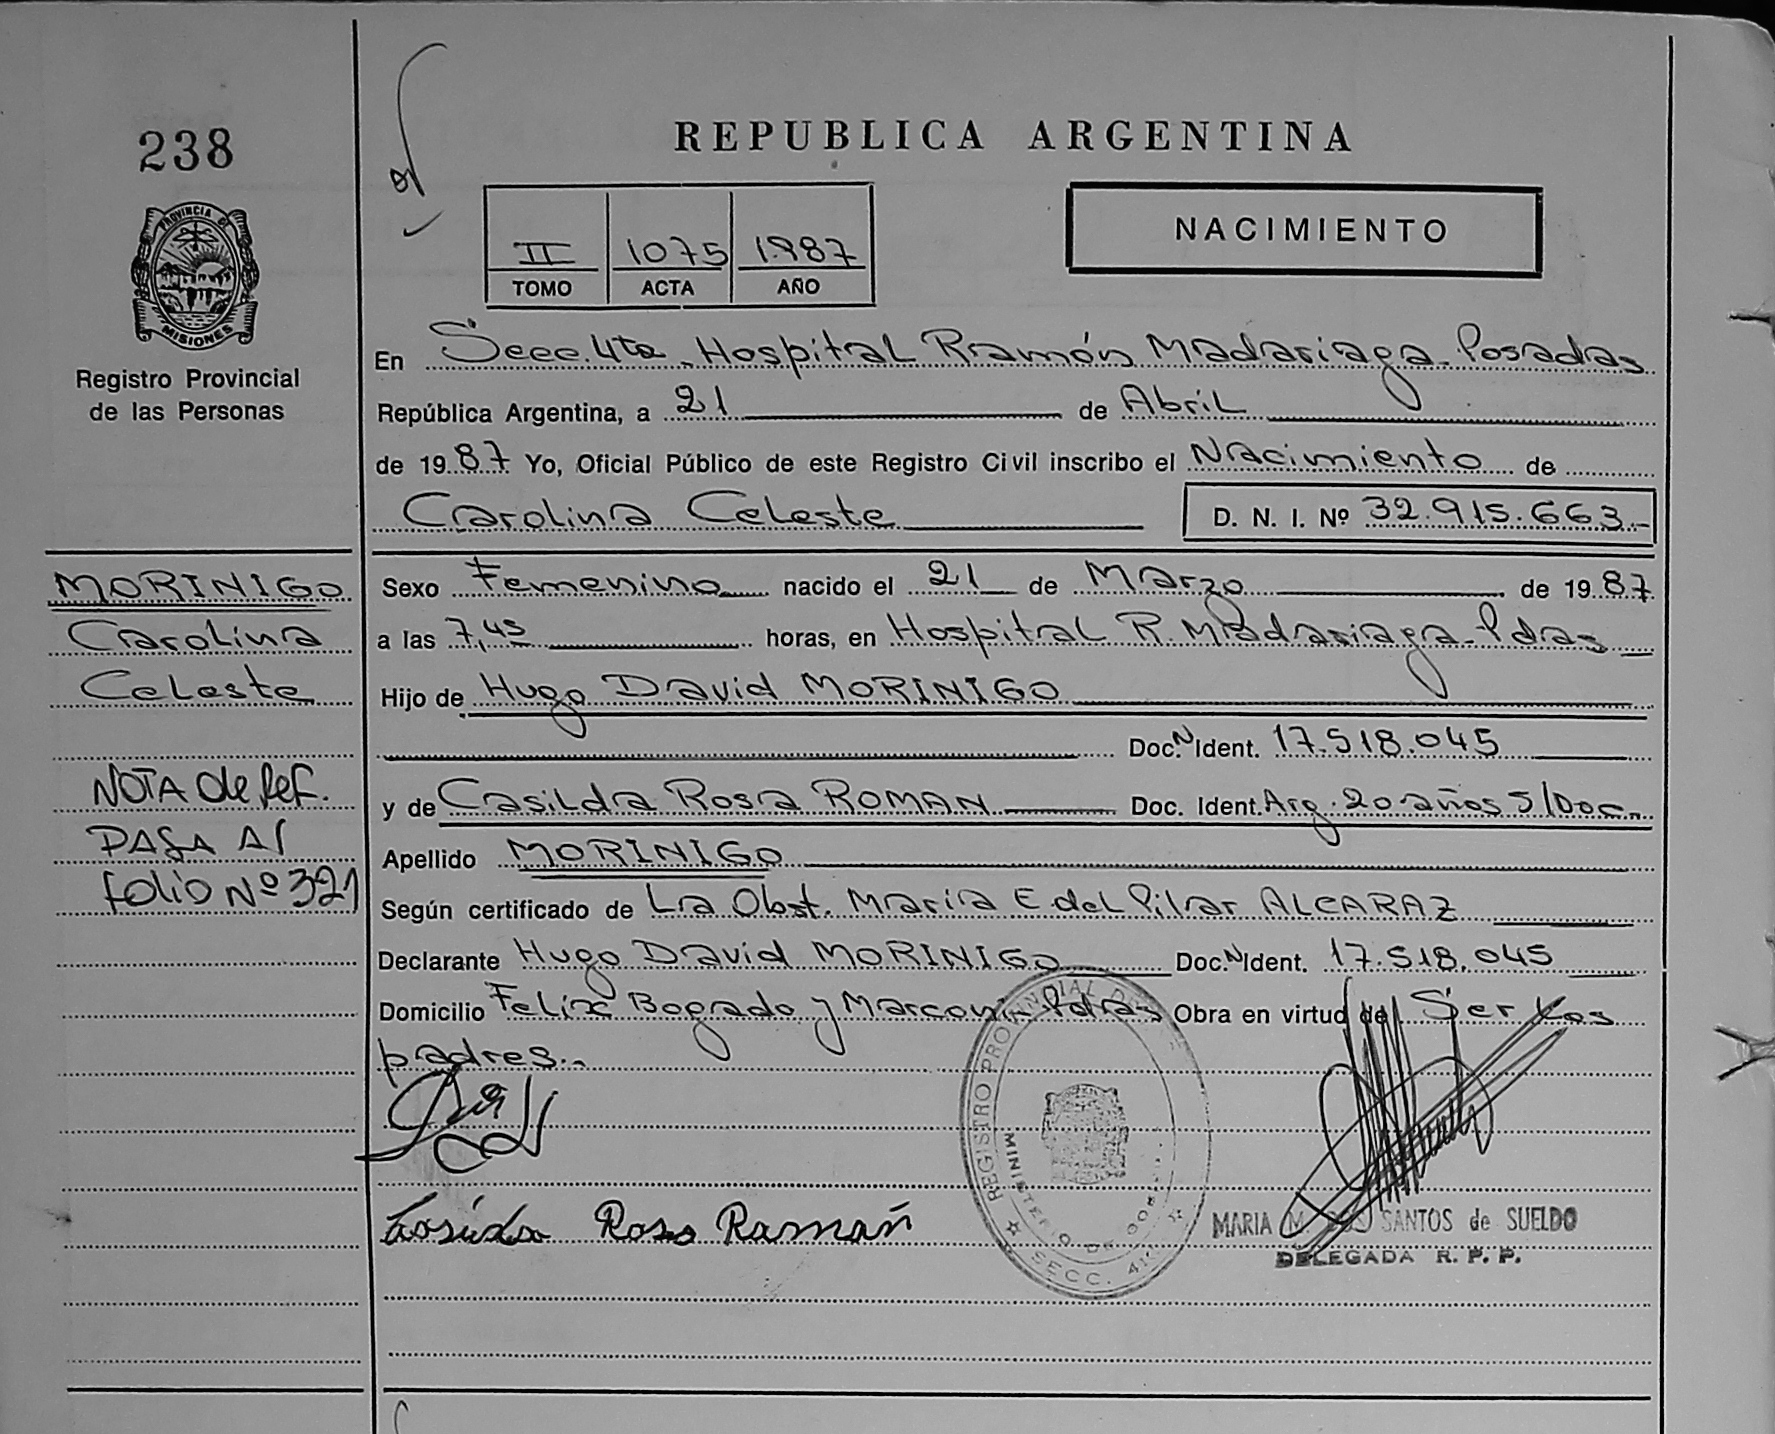 238
REPUBLICA ARGENTINA
PROVINCIA DE
MISIONES
Registro Provincial
de las Personas
II 1075 1987
TOMO ACTA AÑO
NACIMIENTO
En Secc. 4ta. Hospital Ramón Madariaga- Posadas
República Argentina, a 21 de Abril
de 1987 Yo, Oficial Público de este Registro Civil inscribo el Nacimiento de
Carolina Celeste D. N. I. Nº 32.915.663.-
MORINIGO
Carolina
Celeste
NOTA de Ref.
PASA Al
folio Nº 321
Sexo Femenino nacido el 21 de Marzo de 1987.
a las 7,45 horas, en Hospital R. Madariaga- Pdas
Hijo de Hugo David MORINIGO
Doc.N Ident. 17.518.045
y de Casilda Rosa ROMAN Doc. Ident. Arg. 20 años S/Doc.
Apellido MORINIGO
Según certificado de La Obst. María E del Pilar ALCARAZ
Declarante Hugo David MORINIGO Doc.N Ident. 17.518.045
Domicilio Felix Bogado y Marconi Pdas Obra en virtud de Ser los
padres.-
REGISTRO PROVINCIAL DE
MINISTERIO DE GOB
SECC. 4
Rosa Roman
MARIA M. SANTOS de SUELDO
DELEGADA R. P. P.